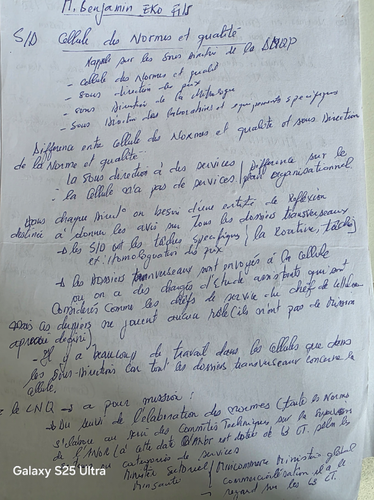 M. Benjamin EKO Fils
S/D Cellule des Normes et qualité
Rappels sur les Sous Direction de la
- Cellule des Normes et qualité
- Sous direction de prix
- Sous Direction de la Métrologie
- Sous Direction des laboratoires et équipements spécifiques
Différence entre Cellule des Normes et qualité et sous Direction
de la Norme et qualité
- la Sous direction a des services | Différence sur le
- la Cellule n'a pas de services | plan organisationnel
Dans chaque on besoin d'une entité de Réflexion
destinée à donner les avis sur tous les dossiers transversaux
→ les S/D ont les tâches spécifiques (la routine, tâches)
ex: Homologation des prix
→ les Dossiers transversaux sont envoyés à la Cellule
ou on a des chargés d'étude assistants qui sont
Considérés comme les chefs de service du chef de Cellule
Mais ces derniers ne jouent aucun rôle (ils n'ont pas de
- Il y a beaucoup de travail dans les Cellules que dans
les Sous-Directions car tout les dossiers transversaux concerne la
Cellule.
le CNQ → a pour mission:
→ Du suivi de l'élaboration des normes (toute les Normes
s'élabore au sein des Comités Techniques sur la Supervision
de l'ANOR (à cette date l'ANOR est dotée de CT selon les
catégorie de services
Ministère Sectoriel
regard sur les CT.
Galaxy S25 Ultra